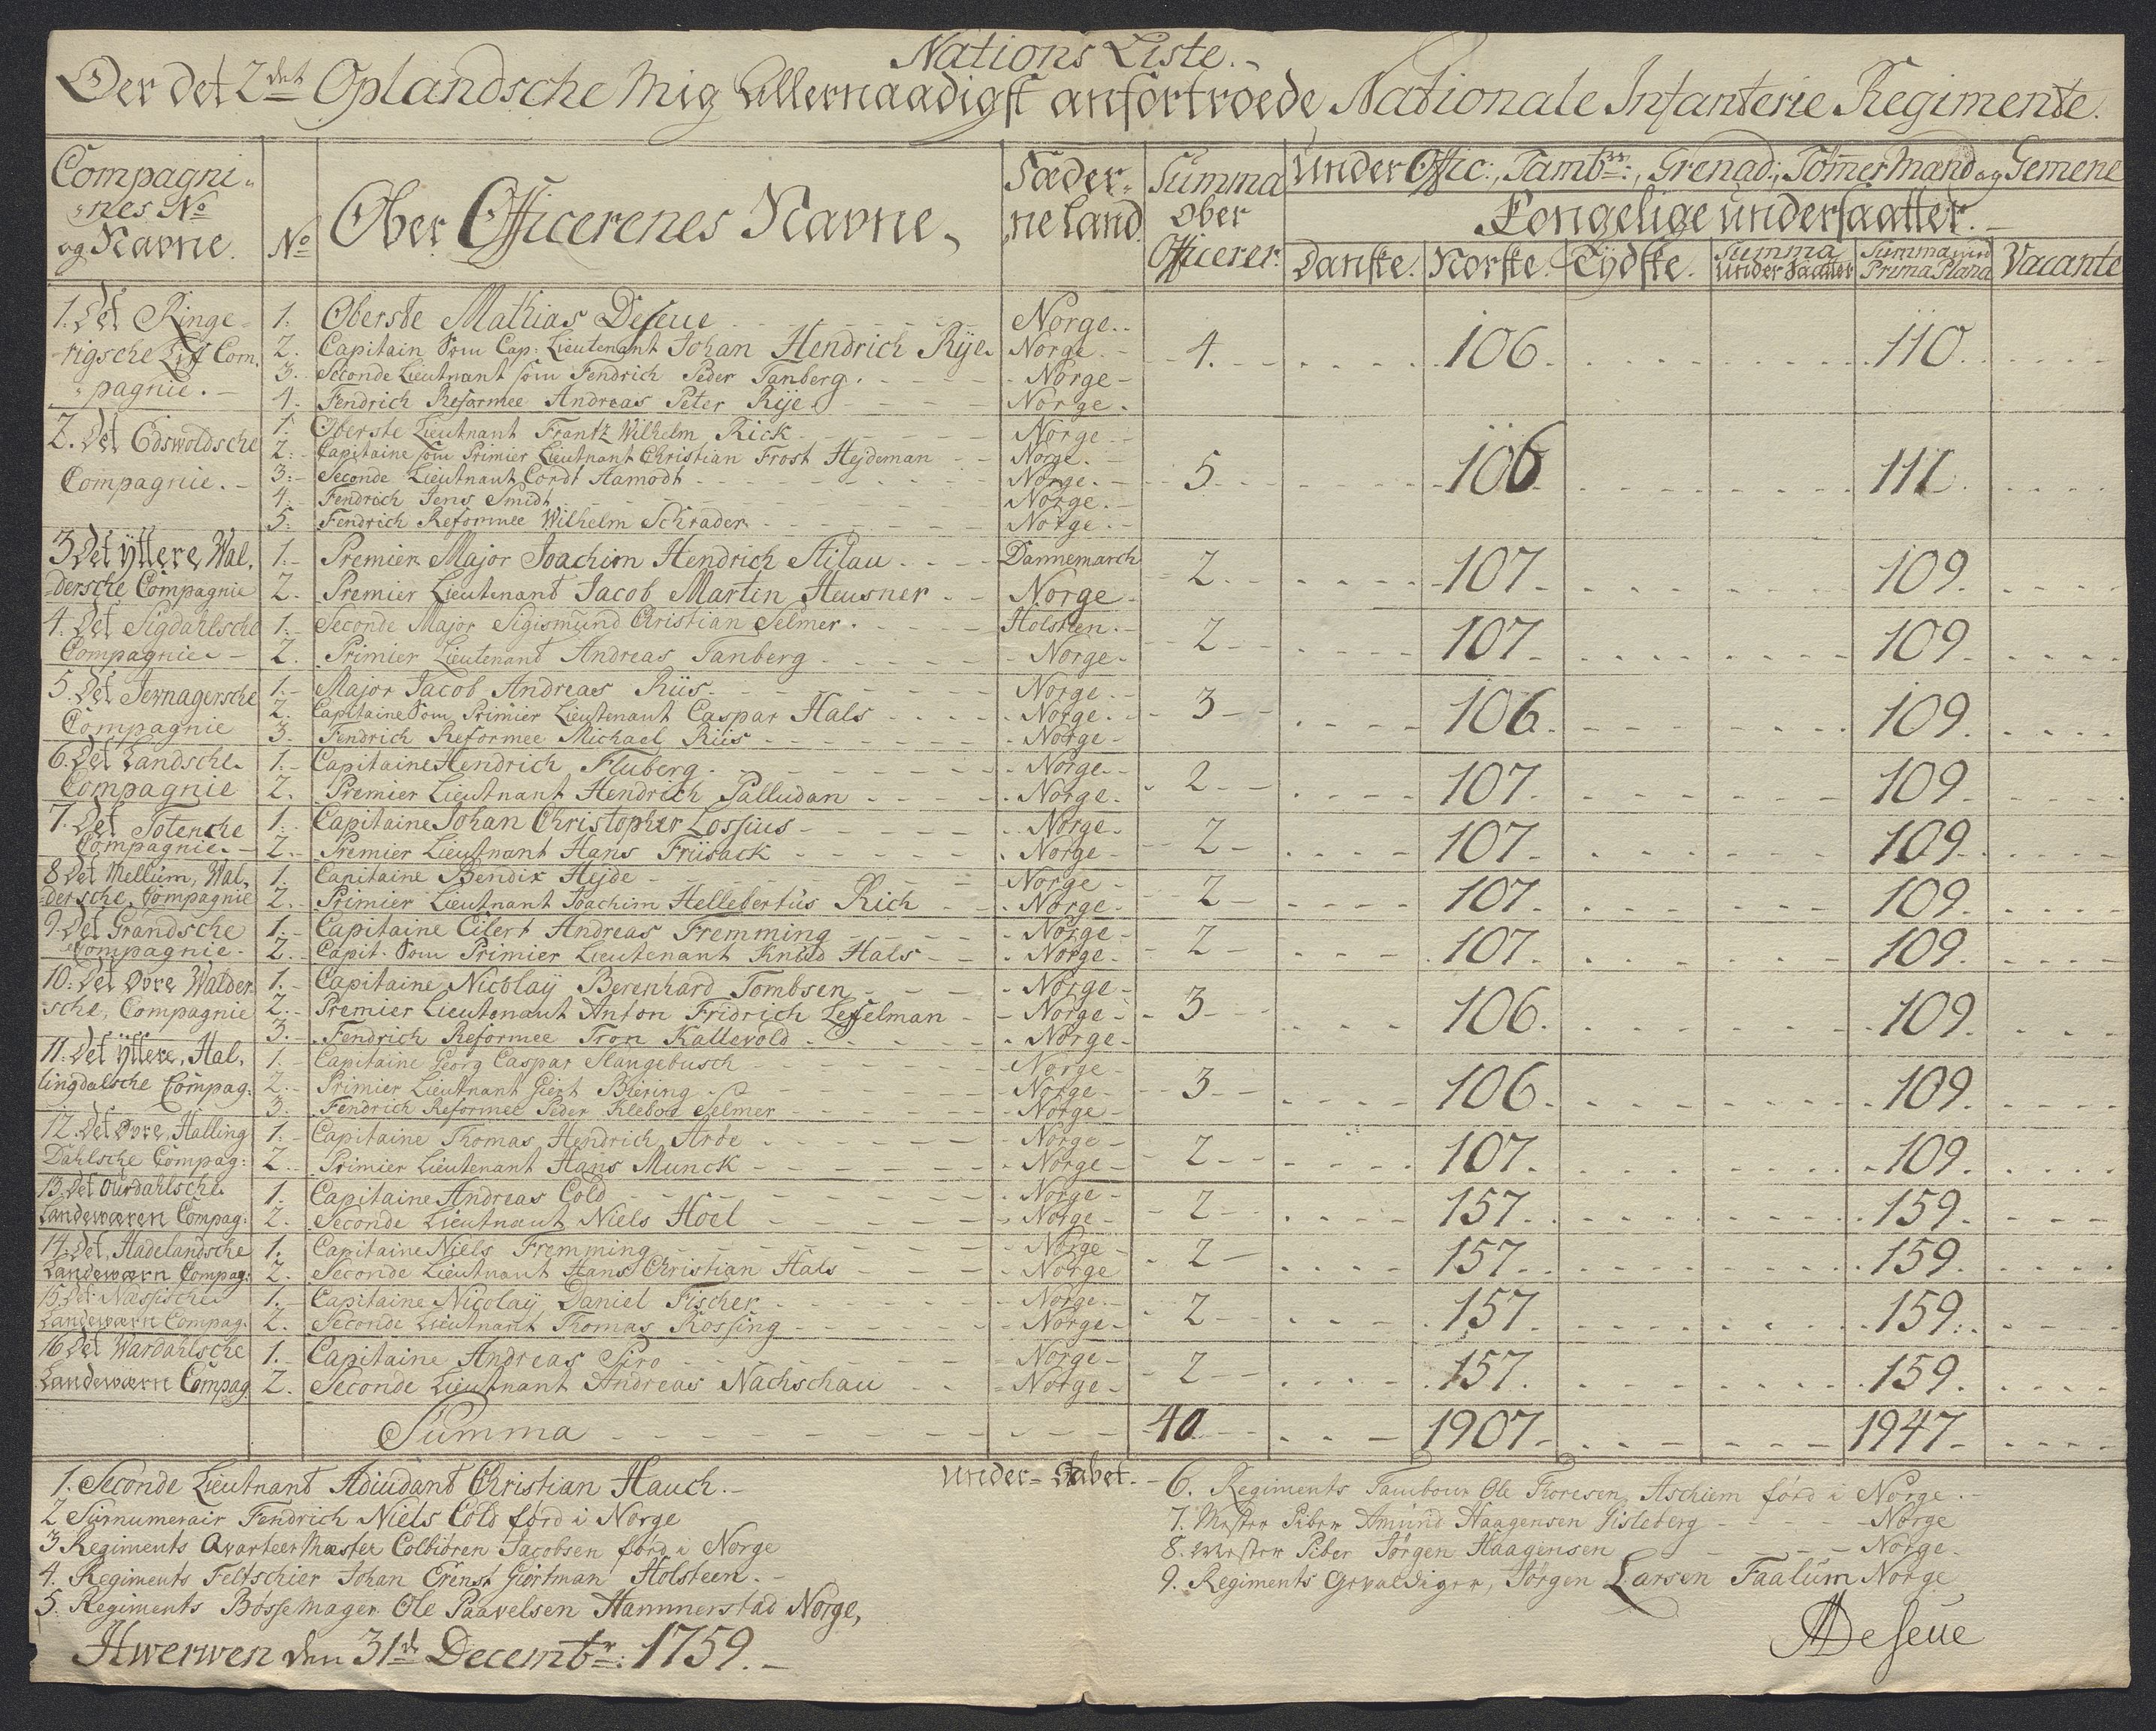 Nations Liste.
Over det 2det Oplandsche Mig Allernaadigst anfortroede Nationale Infanterie Regimente.
Compagni-
nes No
og Navne.
No
Ober Officerenes Navne,
Fæder-
neland
Summa
Ober
Officerer.
Under Offic:, Tambrr:, Grenad:, Tømermand og Gemene
Kongelige undersaatter.
Danske. Norske. Tydske. Summa undersaatter Summa med Prima Plana Vacante
1. Det Ringe-
rigsche Lif Com-
pagnie.
1. Oberste Mathias Deseue Norge.
2. Capitain som Cap: Lieutenant Johan Hendrich Rÿe. Norge. 4. 106. 110.
3. Seconde Lieutnant som Fendrich Peder Tanberg. Norge
4. Fendrich Reformee Andreas Peter Rÿe. Norge.
2. Det Edswoldsche
Compagnie.
1. Oberste Lieutnant Frantz Wilhelm Rick Norge
2. Capitaine som Primier Lieutnant Christian Frost Hejdeman Norge.
3. Seconde Lieutnant Cordt Aamodt Norge. 5 106 111.
4. Fendrich Jens Smidt Norge.
5. Fendrich Reformee Wilhelm Schrader Norge.
3 Det ÿttere Wal-
dersche Compagnie
1. Premier Major Joachim Hendrich Stilau Dannemarch 2. 107. 109.
2. Premier Lieutenant Jacob Martin Heusner Norge
4. Det Sigdahlsche
Compagnie
1. Seconde Major Sigismund Christian Selmer. Holsteen. 2 107 109.
2. Primier Lieutenant Andreas Tanberg Norge
5. Det Jernagersche
Compagnie
1. Major Jacob Andreas Riis Norge.
2. Capitaine som Primier Lieutenant Caspar Hals Norge. 3 106. 109.
3. Fendrich Reformee Michael Riis Norge
6. Det Landsche
Compagnie
1. Capitaine Hendrich Fluberg. Norge. 2 107. 109.
2. Premier Lieutnant Hendrich Palludan Norge.
7. Det Totenche
Compagnie.
1. Capitaine Johan Christopher Lossius Norge. 2 107. 109.
2. Premier Lieutnant Hans Friisack Norge
8 Det Mellum, Wal-
dersche, Compagnie
1. Capitaine Bendix Hejde Norge 2 107. 109.
2. Primier Lieutnant Joachim Hellebertus Rich Norge
9. Det Grandsche
Compagnie.
1. Capitaine Eilert Andreas Fremming Norge 2 107. 109.
2. Capit. som Primier Lieutenant Knud Hals Norge.
10. Det Øvre Walder
sche, Compagnie
1. Capitaine Nicolaÿ Berenhard Tombsen Norge
2. Premier Lieutenant Anton Fridrich Lesselman Norge 3 106. 109.
3. Fendrich Reformee Tron Kallevold Norge
11. Det ÿttere, Hal-
lingdalsche Compag.
1. Capitaine Georg Caspar Stangebusch Norge
2. Primier Lieutnant Giert Biering Norge 3 106. 109.
3. Fendrich Reformee Peder Kleboe Selmer Norge
12. Det Øvre, Halling
Dahlsche Compag:
1. Capitaine Thomas Hendrich Arbe Norge 2 107. 109.
2. Primier Lieutenant Hans Munck Norge
13. Det Ourdahlsche
Landewæren Compag:
1. Capitaine Andreas Cold Norge 2 157. 159.
2. Seconde Lieutnant Niels Hoel Norge
14. Det Hadelandsche
Landewærn Compag:
1. Capitaine Niels Fremming Norge 2 157. 159.
2. Seconde Lieutnant Hans Christian Hals Norge
15. Det Næssische
Landewærn Compag.
1. Capitaine Nicolaÿ Daniel Fischer Norge. 2 157. 159.
2. Seconde Lieutnant Thomas Rossing Norge
16 Det Wardahlsche
Landewærn Compag
1. Capitaine Andreas Siro Norge 2 157. 159.
2. Seconde Lieutnant Andreas Nachschau Norge
Summa 40 1907 1947
Under-Stabet.
1. Seconde Lieutnant Adiudant Christian Hauch.
2 Surnumerair Fendrich Niels Cold förd i Norge
3 Regiments Qvarteer Mæster Colbiören Jacobsen förd i Norge
4. Regiments Feltschier Johan Ernst Giertman Holsteen.
5. Regiments Bösse Mager Ole Paavelsen Hammerstad Norge,
6. Regiments Tambour Ole Thoresen Aschiem förd i Norge.
7. Mester Piber Amund Haagensen Gisleberg Norge
8. Mester Piber Jörgen Haagensen Norge.
9. Regiments Gevaldiger, Jörgen Larsen Faalum Norge
Hwerwen den 31de Decembr: 1759.
MDeseue